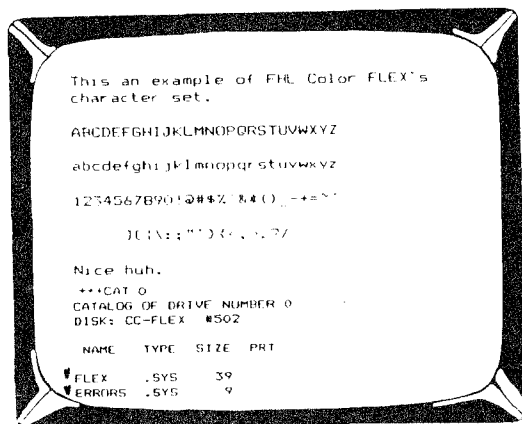 This an example of FHL Color FLEX's
character set.
ABCDEFGHIJKLMNOPQRSTUVWXYZ
abcdefghijklmnopqrstuvwxyz
1234567890!@#$%^&*()_-+=~`
Nice huh.
+++CAT 0
CATALOG OF DRIVE NUMBER 0
DISK: CC-FLEX #502
NAME TYPE SIZE PRT
FLEX .SYS 39
ERRORS .SYS 9